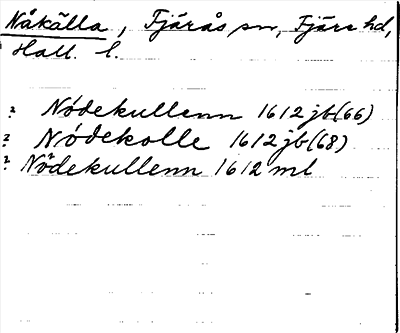 Nåkälla, Fjärås sn, Fjäre hd,
Hall. l.
? Nödekullenn 1612 jb(66)
? Nödekolle 1612 jb(68)
? Nödekullenn 1612 ml